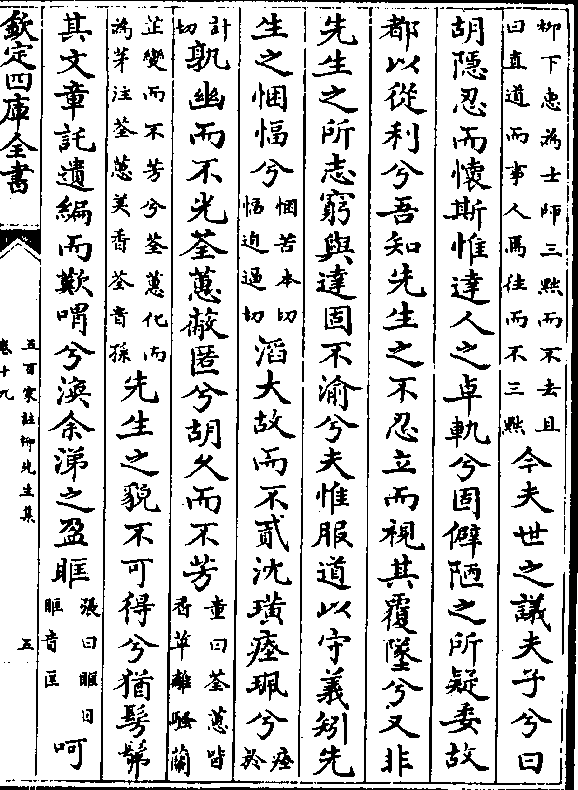 柳下惠為士師三黜而不去且
曰直道而事人焉往而不三黜
今夫世之議夫子兮曰
胡隱忍而懷斯惟達人之卓軌兮固僻陋之所疑委故
都以從利兮吾知先生之不忍立而視其覆墜兮又非
先生之所志窮與達固不渝兮夫惟服道以守義矧先
生之悃愊兮
悃苦本切
愊迫逼切
滔大故而不貳沈璜瘞珮兮
瘞
於
計
切
孰幽而不光荃蕙蔽匿兮胡久而不芳
童曰荃蕙皆
香草離騷蘭
芷變而不芳兮荃蕙化而
為茅注荃蕙美香荃音孫
先生之貌不可得兮猶髣髴
其文章託遺編而歎喟兮渙余涕之盈眶
張曰眶目
眶音匡
呵
欽定四庫全書
五百家註柳先生集
卷十九
五